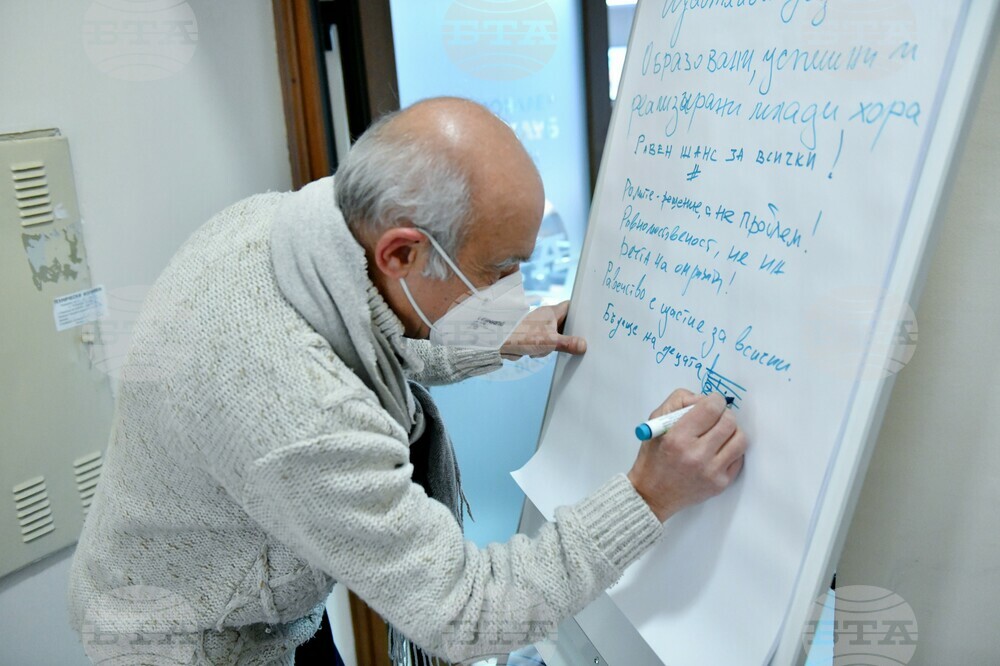 Образовани, успешни и
реализирани млади хора
РАВЕН ШАНС ЗА ВСИЧКИ!
#
Ромите - решение, а не проблем!
Равнопоставеност, не на
речта на омразата!
Равенство е щастие за всички.
Бъдеще на децата!
БТА